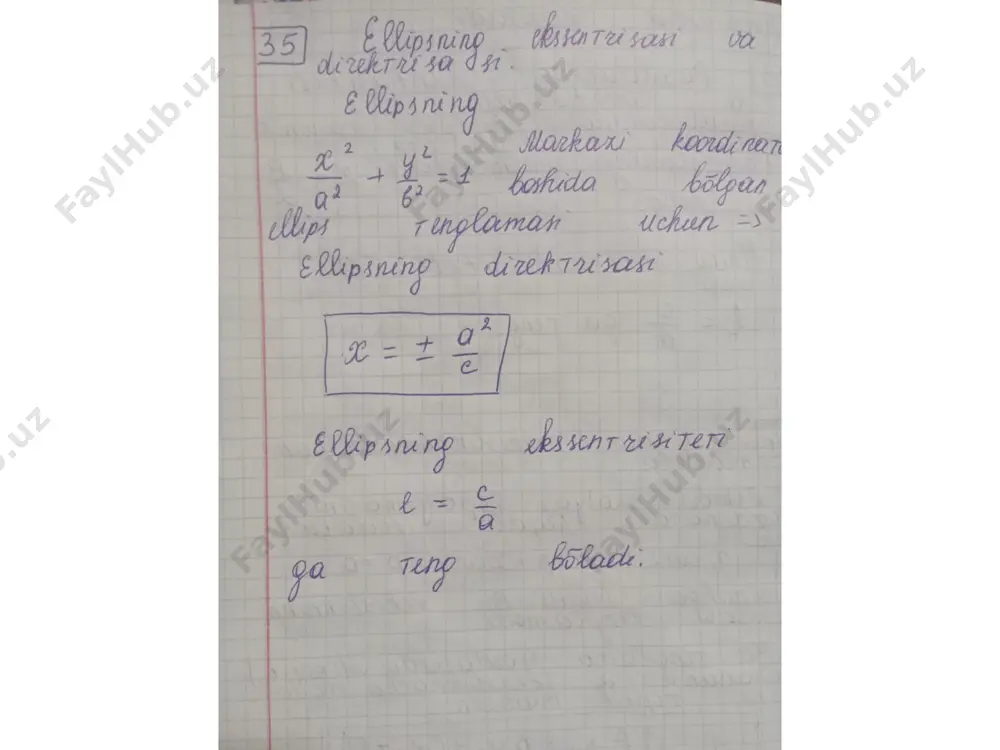 35 Ellipsning ekssentrisasi va
direktrisasi.
Ellipsning
x²/a² + y²/b² = 1 Markazi koordinata
boshida bōlgan
ellips tenglamasi uchun =>
Ellipsning direktrisasi
x = ± a²/c
Ellipsning ekssentrisiteti
e = c/a
ga teng bōladi.
FaylHub.uz
FaylHub.uz
FaylHub.uz
FaylHub.uz
FaylHub.uz
FaylHub.uz
.uz